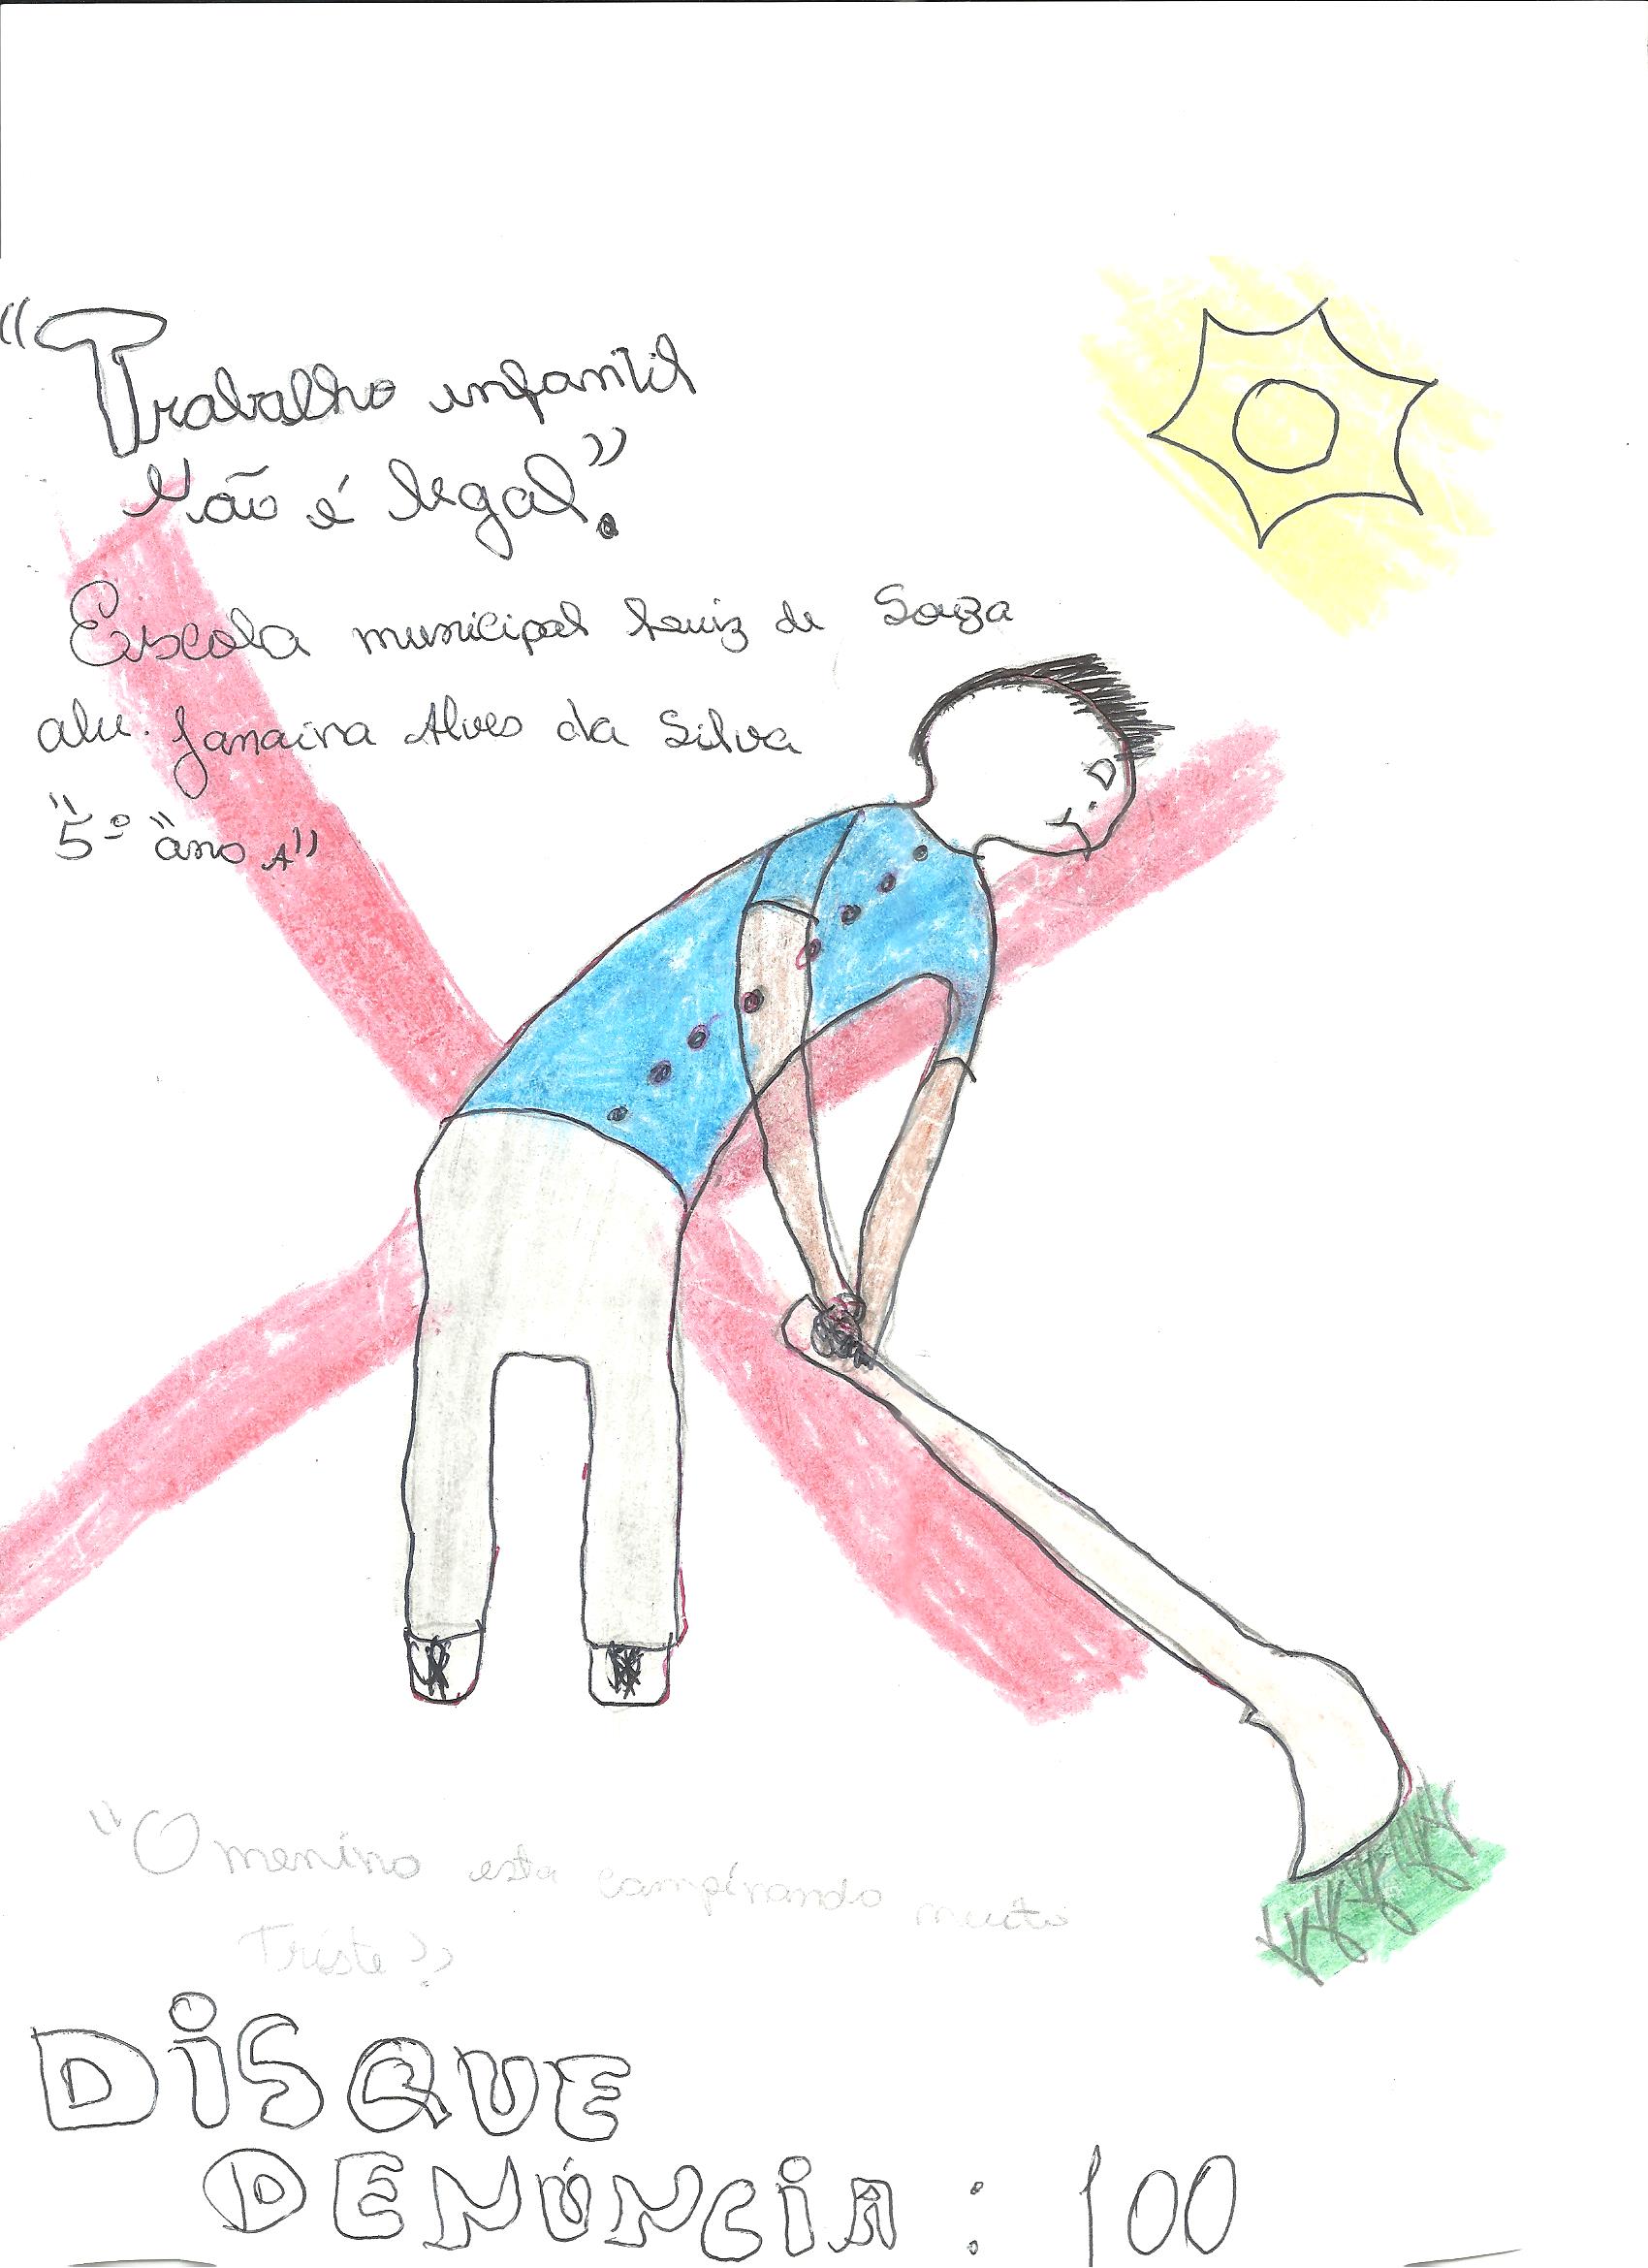 "Trabalho infantil
Não é legal".
Escola municipal Luiz de Souza
alu. Janaina Alves da Silva
"5º "ano A"
"O menino esta campinando muito
Triste"
DiSQUE
DENÚNCiA: 100